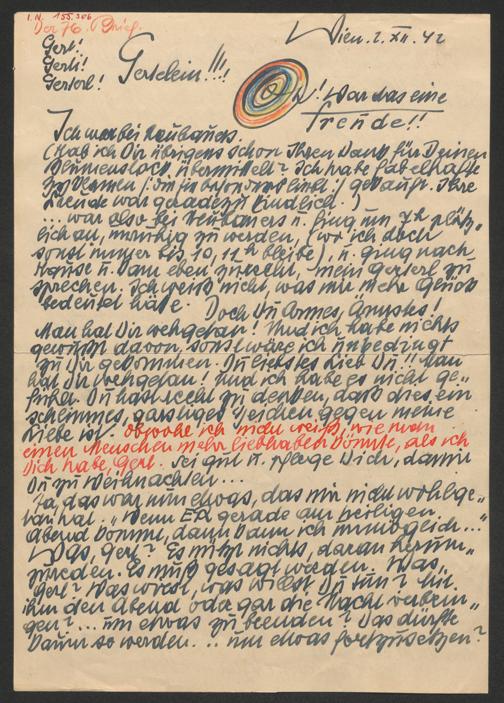 I.N. 155.306
Der 76. Brief.
Wien. 2. XII. 42
Gerl!
Gerli!
Gerserl! Gerslein!!!
! War das eine
Freude!!
Ich war bei Neubauers.
(Hab ich Dir übrigens schon Ihren Dank für Deinen
Blumenstock übermittelt? Ich habe fabelhafte
gekauft. Ihre
Freude war geradezu kindlich.)
... war also bei Neubauers u. fing um 7h plötz-
lich an, unruhig zu werden, (wo ich doch
sonst immer bis 10, 11h bleibe), u. ging nach-
hause u. kam eben zurecht, mein Gerserl zu
sprechen. Ich weiß nicht, was mir mehr Glück
bedeutet hätte. Doch Du Armes, Ärmstes!
Man hat Dir wehgetan! Und ich habe nichts
gewußt davon, sonst wäre ich unbedingt
zu Dir gekommen. Du liebstes Lieb Du!! Man
hat Dir wehgetan! Und ich habe es nicht ge-
fühlt. Du hast recht zu denken, daß dies ein
schlimmes, garstiges Zeichen gegen meine
Liebe ist. Obwohl ich nicht weiß, wie man
einen Menschen mehr liebhaben könnte, als ich
Dich habe, Gerl. Sei gut u. pflege Dich, damit
Du zu Weihnachten...
Ja, das war nun etwas, das mir nicht wohlge-
tan hat. „Wenn ER gerade am heiligen
Abend kommt, dann kann ich unmöglich..."
Was, Gerl? Es nützt nichts, darum herum-
zureden. Es muß gesagt werden. Was,
Gerl? Was wirst, was willst Du tun? Mit
ihm den Abend oder gar die Nacht verbrin-
gen?... um etwas zu beenden? Das dürfte
kaum so werden... um etwas fortzusetzen?